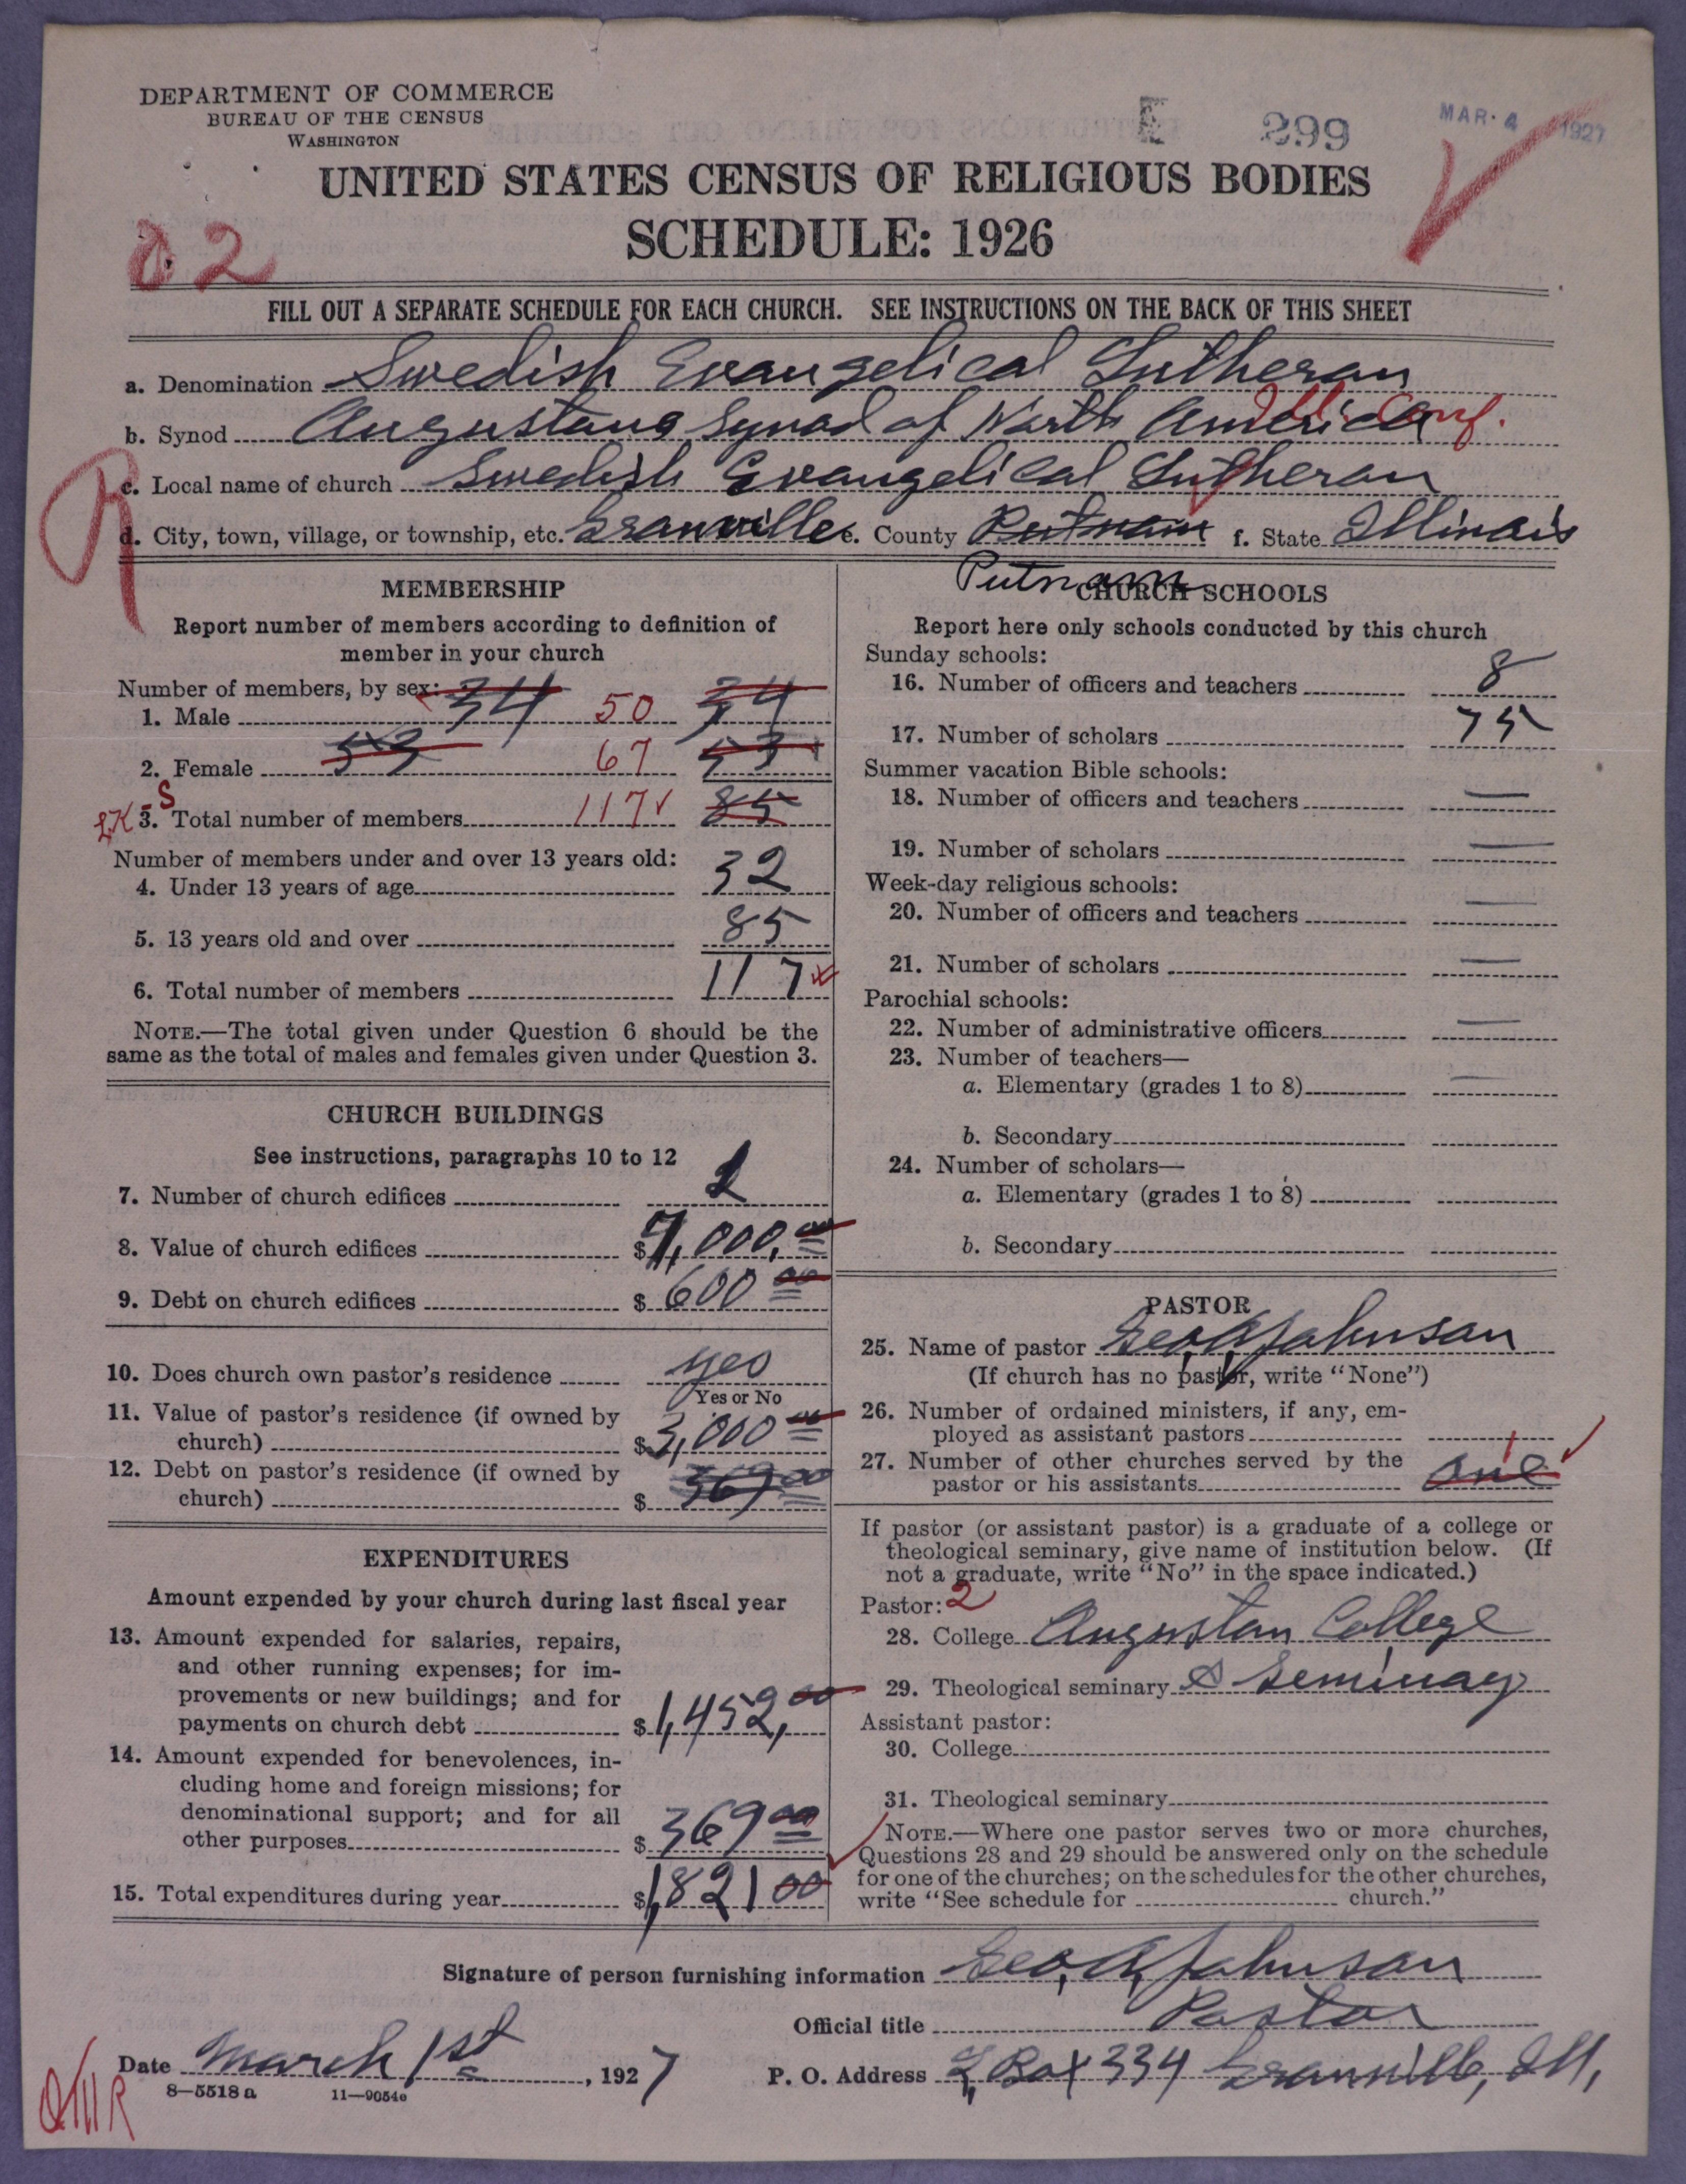 DEPARTMENT OF COMMERCE
BUREAU OF THE CENSUS
WASHINGTON
E 299 MAR. 4 1927
UNITED STATES CENSUS OF RELIGIOUS BODIES
SCHEDULE: 1926
FILL OUT A SEPARATE SCHEDULE FOR EACH CHURCH. SEE INSTRUCTIONS ON THE BACK OF THIS SHEET
a. Denomination Swedish Evangelical Lutheran
b. Synod Augustana Synod of North America Conf.
c. Local name of church Swedish Evangelical Lutheran
d. City, town, village, or township, etc. Granville e. County Putnam f. State Illinois
Putnam
MEMBERSHIP
Report number of members according to definition of
member in your church
Number of members, by sex:
1. Male 34 50 34
2. Female 53 67 53
3. Total number of members 117 85
Number of members under and over 13 years old:
4. Under 13 years of age 32
5. 13 years old and over 85
6. Total number of members 117
NOTE.—The total given under Question 6 should be the
same as the total of males and females given under Question 3.
CHURCH BUILDINGS
See instructions, paragraphs 10 to 12
7. Number of church edifices
8. Value of church edifices $7,000.00
9. Debt on church edifices $600 00
10. Does church own pastor's residence yes
Yes or No
11. Value of pastor's residence (if owned by
church) $3,000 00
12. Debt on pastor's residence (if owned by
church) $369 00
EXPENDITURES
Amount expended by your church during last fiscal year
13. Amount expended for salaries, repairs,
and other running expenses; for im-
provements or new buildings; and for
payments on church debt $1,452,00
14. Amount expended for benevolences, in-
cluding home and foreign missions; for
denominational support; and for all
other purposes $369 00
15. Total expenditures during year $1,821 00
CHURCH SCHOOLS
Report here only schools conducted by this church
Sunday schools:
16. Number of officers and teachers 8
17. Number of scholars 75
Summer vacation Bible schools:
18. Number of officers and teachers —
19. Number of scholars —
Week-day religious schools:
20. Number of officers and teachers —
21. Number of scholars —
Parochial schools:
22. Number of administrative officers —
23. Number of teachers—
a. Elementary (grades 1 to 8) —
b. Secondary
24. Number of scholars—
a. Elementary (grades 1 to 8)
b. Secondary
PASTOR
25. Name of pastor Geo. A. Johnson
(If church has no pastor, write "None")
26. Number of ordained ministers, if any, em-
ployed as assistant pastors
27. Number of other churches served by the
pastor or his assistants one 1
If pastor (or assistant pastor) is a graduate of a college or
theological seminary, give name of institution below. (If
not a graduate, write "No" in the space indicated.)
Pastor: 2
28. College Augustan College
29. Theological seminary & Seminary
Assistant pastor:
30. College
31. Theological seminary
NOTE.—Where one pastor serves two or more churches,
Questions 28 and 29 should be answered only on the schedule
for one of the churches; on the schedules for the other churches,
write "See schedule for church."
Signature of person furnishing information Geo. A. Johnson
Official title Pastor
Date March 1st, 1927 P. O. Address Box 334 Granville, Ill,
8—5518a 11—9054e